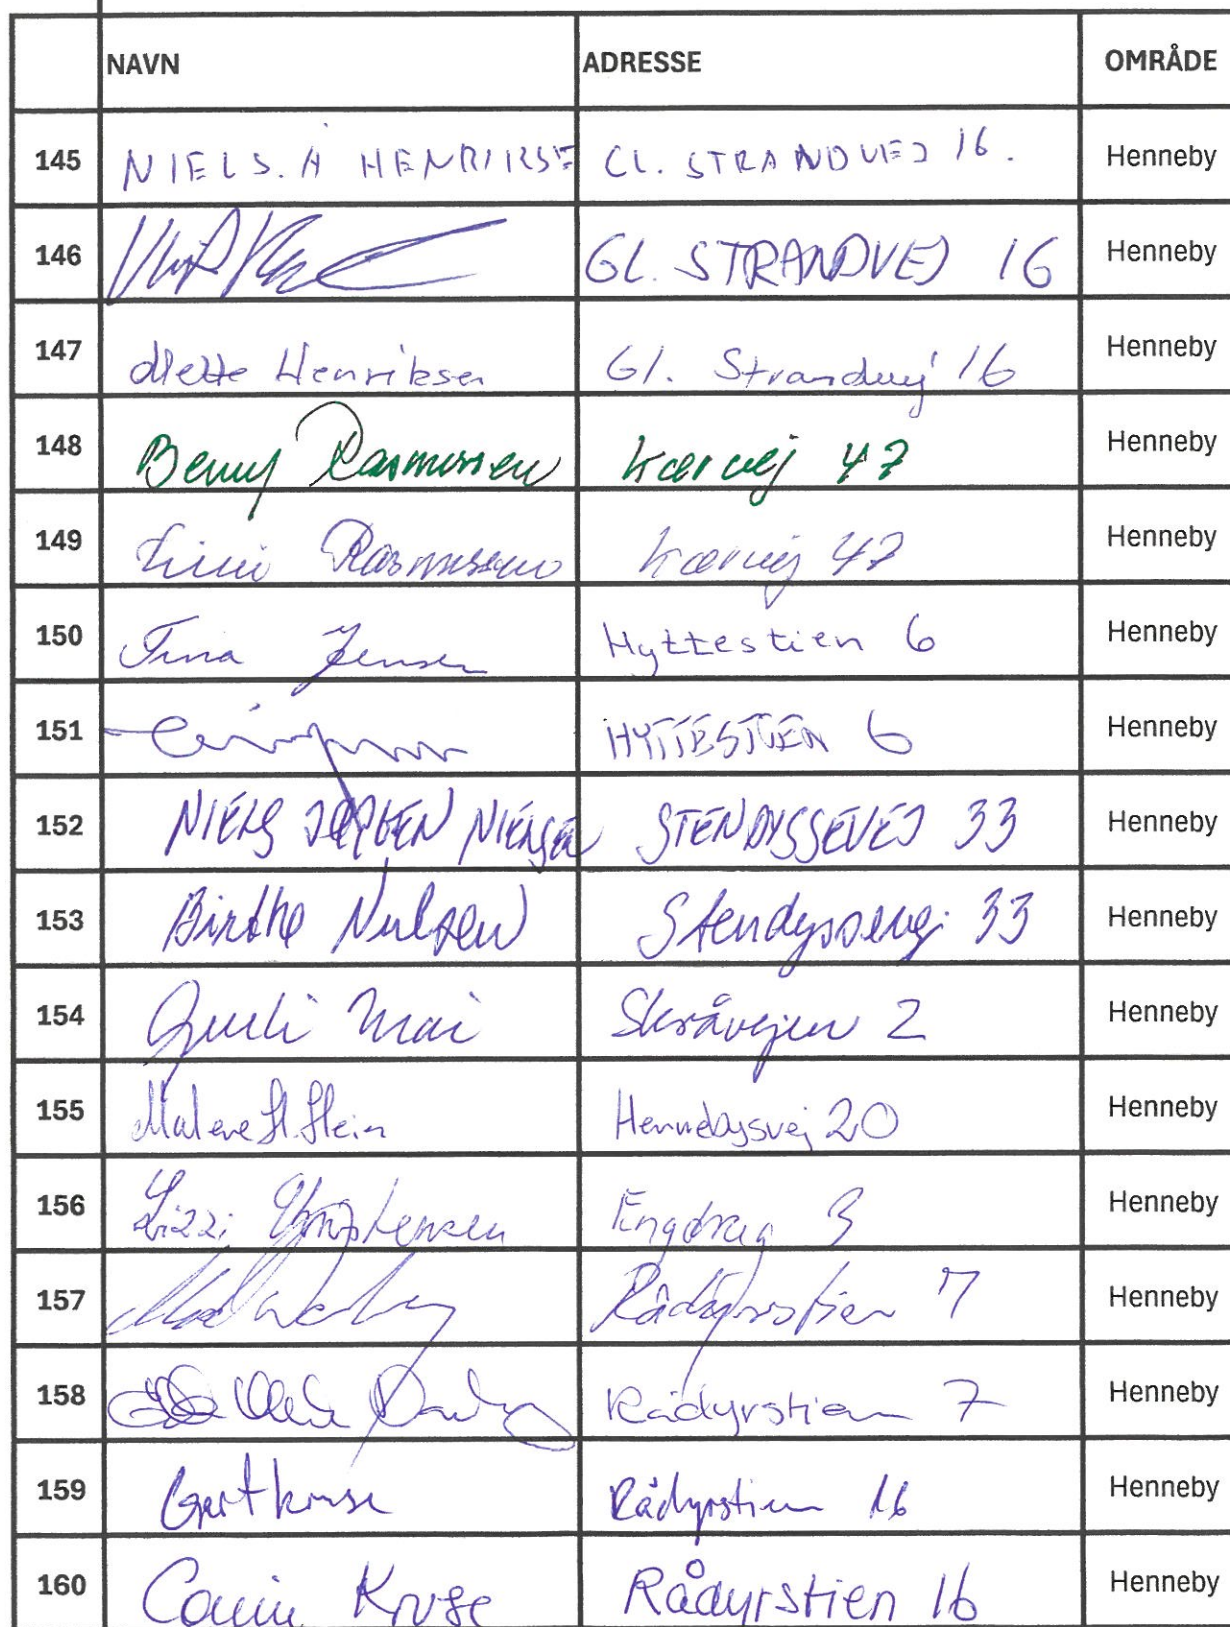 NAVN ADRESSE OMRÅDE
145 NIELS. A HENRIKSE GL. STRANDVEJ 16. Henneby
146 GL. STRANDVEJ 16 Henneby
147 Mette Henriksen Gl. Strandvej 16 Henneby
148 Benny Rasmussen Kærvej 47 Henneby
149 Rasmussen Kærvej 47 Henneby
150 Tina Jensen Hyttestien 6 Henneby
151 HYTTESTIEN 6 Henneby
152 NIELS JØRGEN NIELSEN STENDYSSEVEJ 33 Henneby
153 Birthe Nielsen Stendyssevej 33 Henneby
154 Gurli Mai Skråvejen 2 Henneby
155 Malene St. Stein Hennebysvej 20 Henneby
156 Lizzi Christensen Engdrag 3 Henneby
157 Rådyrstien 7 Henneby
158 Rådyrstien 7 Henneby
159 Gert Kruse Rådyrstien 16 Henneby
160 Kruse Rådyrstien 16 Henneby